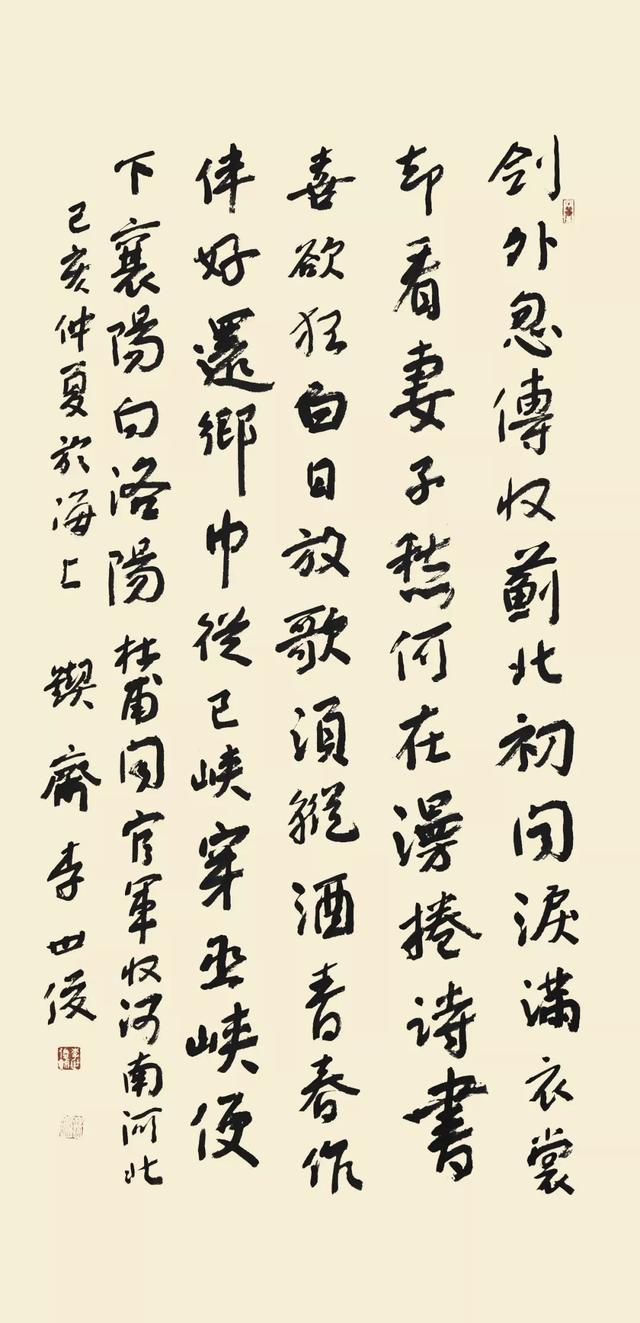 劍外忽傳收薊北初聞淚滿衣裳
却看妻子愁何在漫捲詩書
喜欲狂白日放歌須縱酒青春作
伴好還鄉即從巴峽穿巫峽便
下襄陽向洛陽 杜甫聞官軍收河南河北
己亥仲夏於海上 鍥齋李世俊